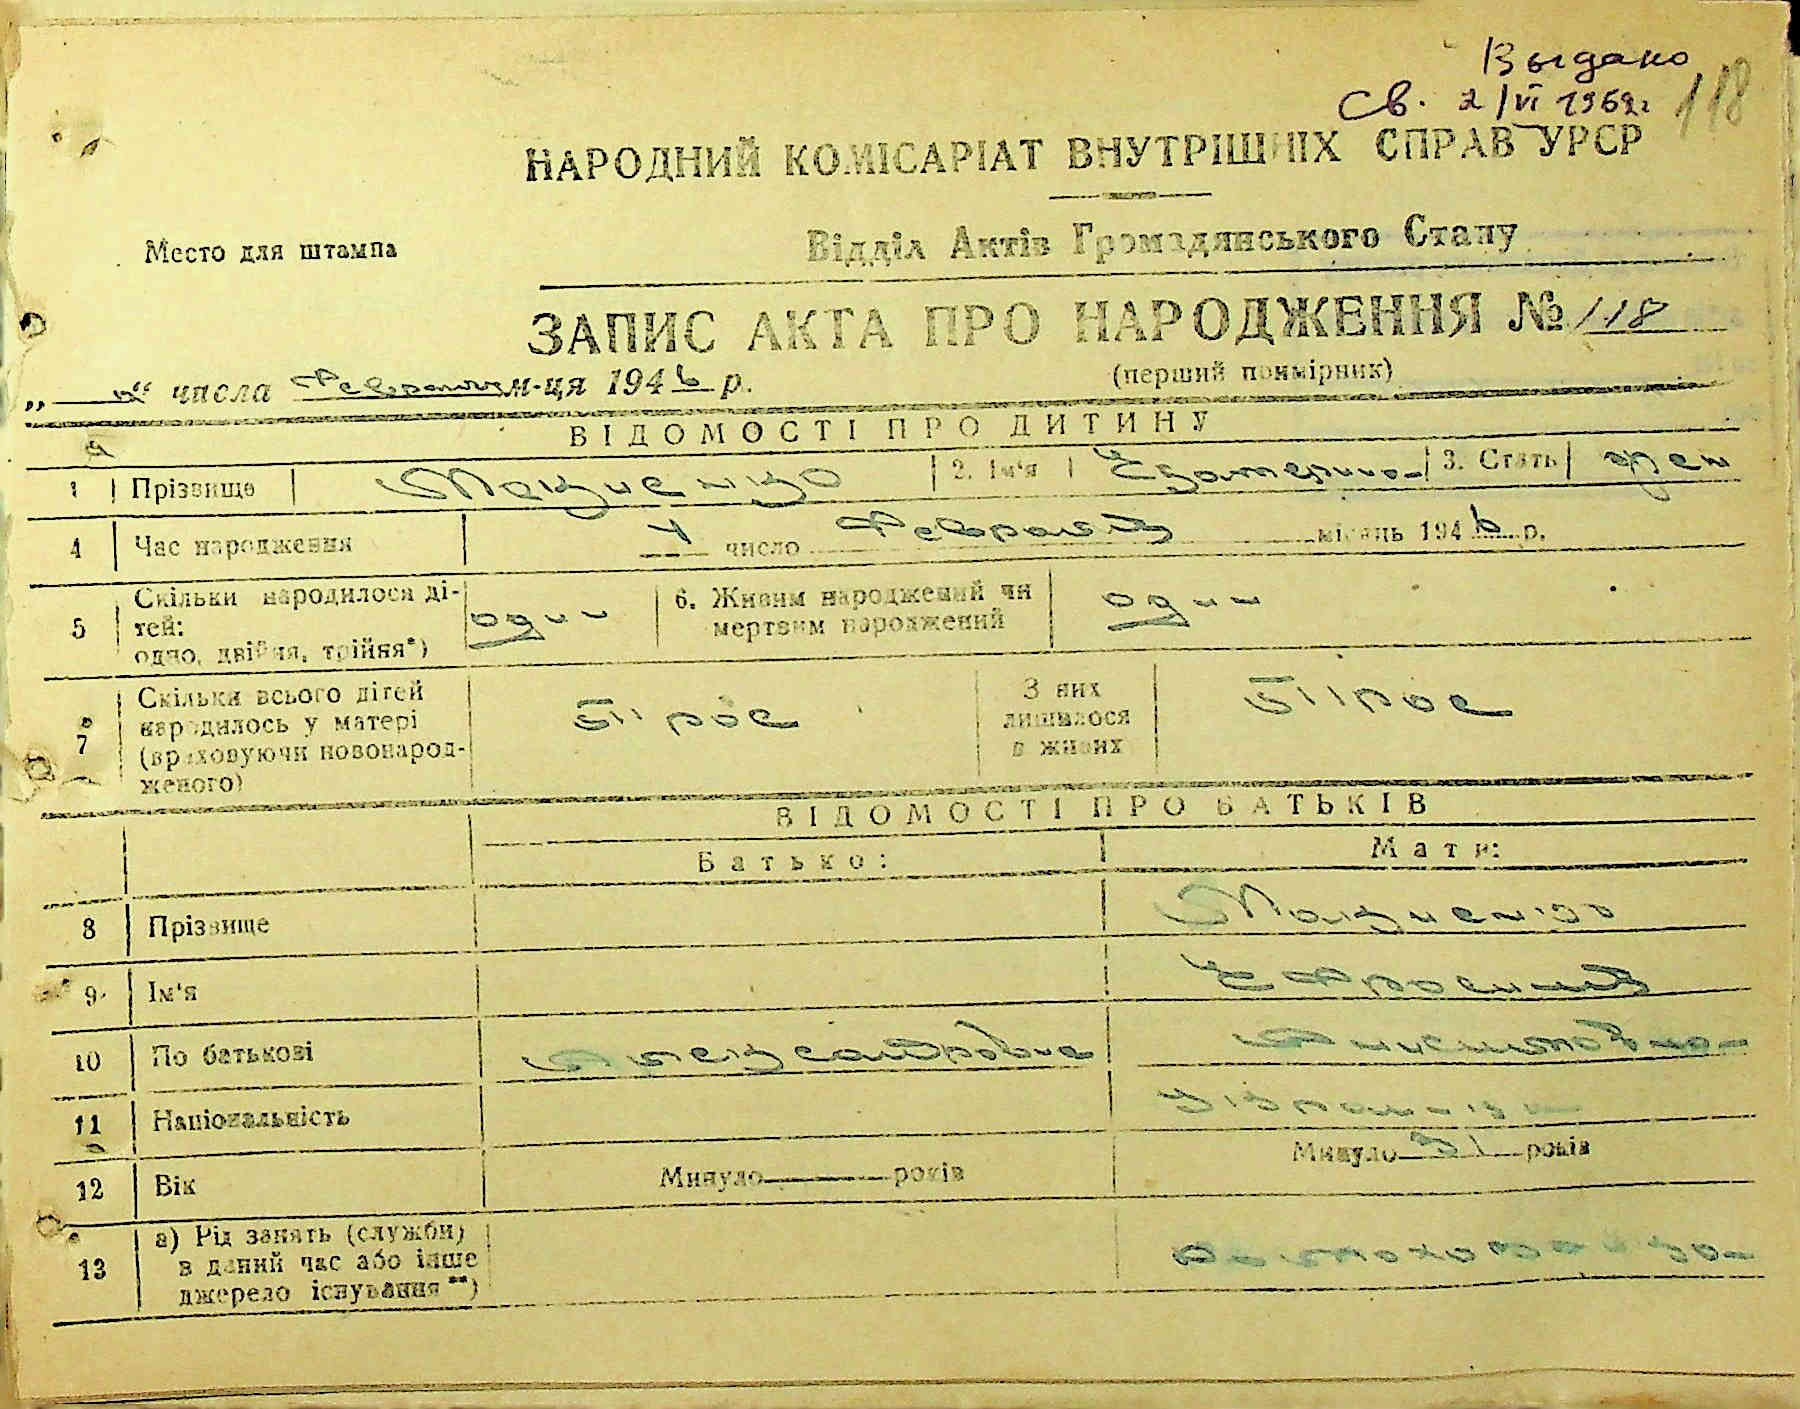 Выдано
Св. 2/VI 1969г 118
НАРОДНИЙ КОМІСАРІАТ ВНУТРІШНІХ СПРАВ УРСР
Место для штампа
Відділ Актів Громадянського Стану
ЗАПИС АКТА ПРО НАРОДЖЕННЯ № 118
(перший примірник)
числа Февраля м-ця 1946 р.
ВІДОМОСТІ ПРО ДИТИНУ
1 Прізвище Макиенко 2. Ім'я Екатерина 3. Стать жен
4 Час народження 4 число Февраля місяць 1946 р.
5 Скільки народилося ді-
тей:
одно, двійня, трійня*) один 6. Живим народжений чи
мертвим народжений один
7 Скільки всього дітей
народилось у матері
(враховуючи новонарод-
женого)
З них
лишилося
в живих
ВІДОМОСТІ ПРО БАТЬКІВ
Батько: Мати:
8 Прізвище Макиенко
9 Ім'я Ефросиния
10 По батькові Александровна
11 Національність Украинка
12 Вік Минуло років Минуло 31 років
13 а) Рід занять (служби)
в даний час або інше
джерело існування**) домохозяйка